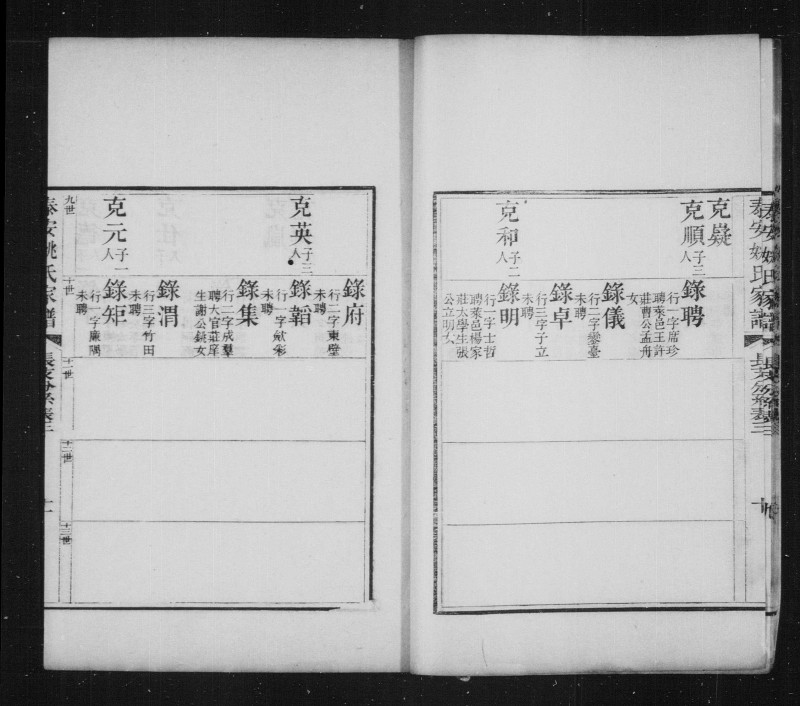 泰安姚氏家譜
長支分系表三
克嶷
克順 子三人
錄聘 行一字席珍
聘萊邑王許
莊曹公孟舟
女
錄儀 行二字鑾臺
未聘
錄卓 行三字子立
未聘
克和 子二人
錄明 行一字士哲
聘萊邑楊家
莊太學生張
公立明女
錄府 行二字東壁
未聘
克英 子三人
錄韜 行一字猷彩
未聘
錄集 行二字成羣
聘大官莊庠
生謝公銳女
錄渭 行三字竹田
未聘
克元 子一人
錄矩 行一字廉隅
未聘
九世
十世
十一世
十二世
十三世
泰安姚氏家譜
長支分系表三